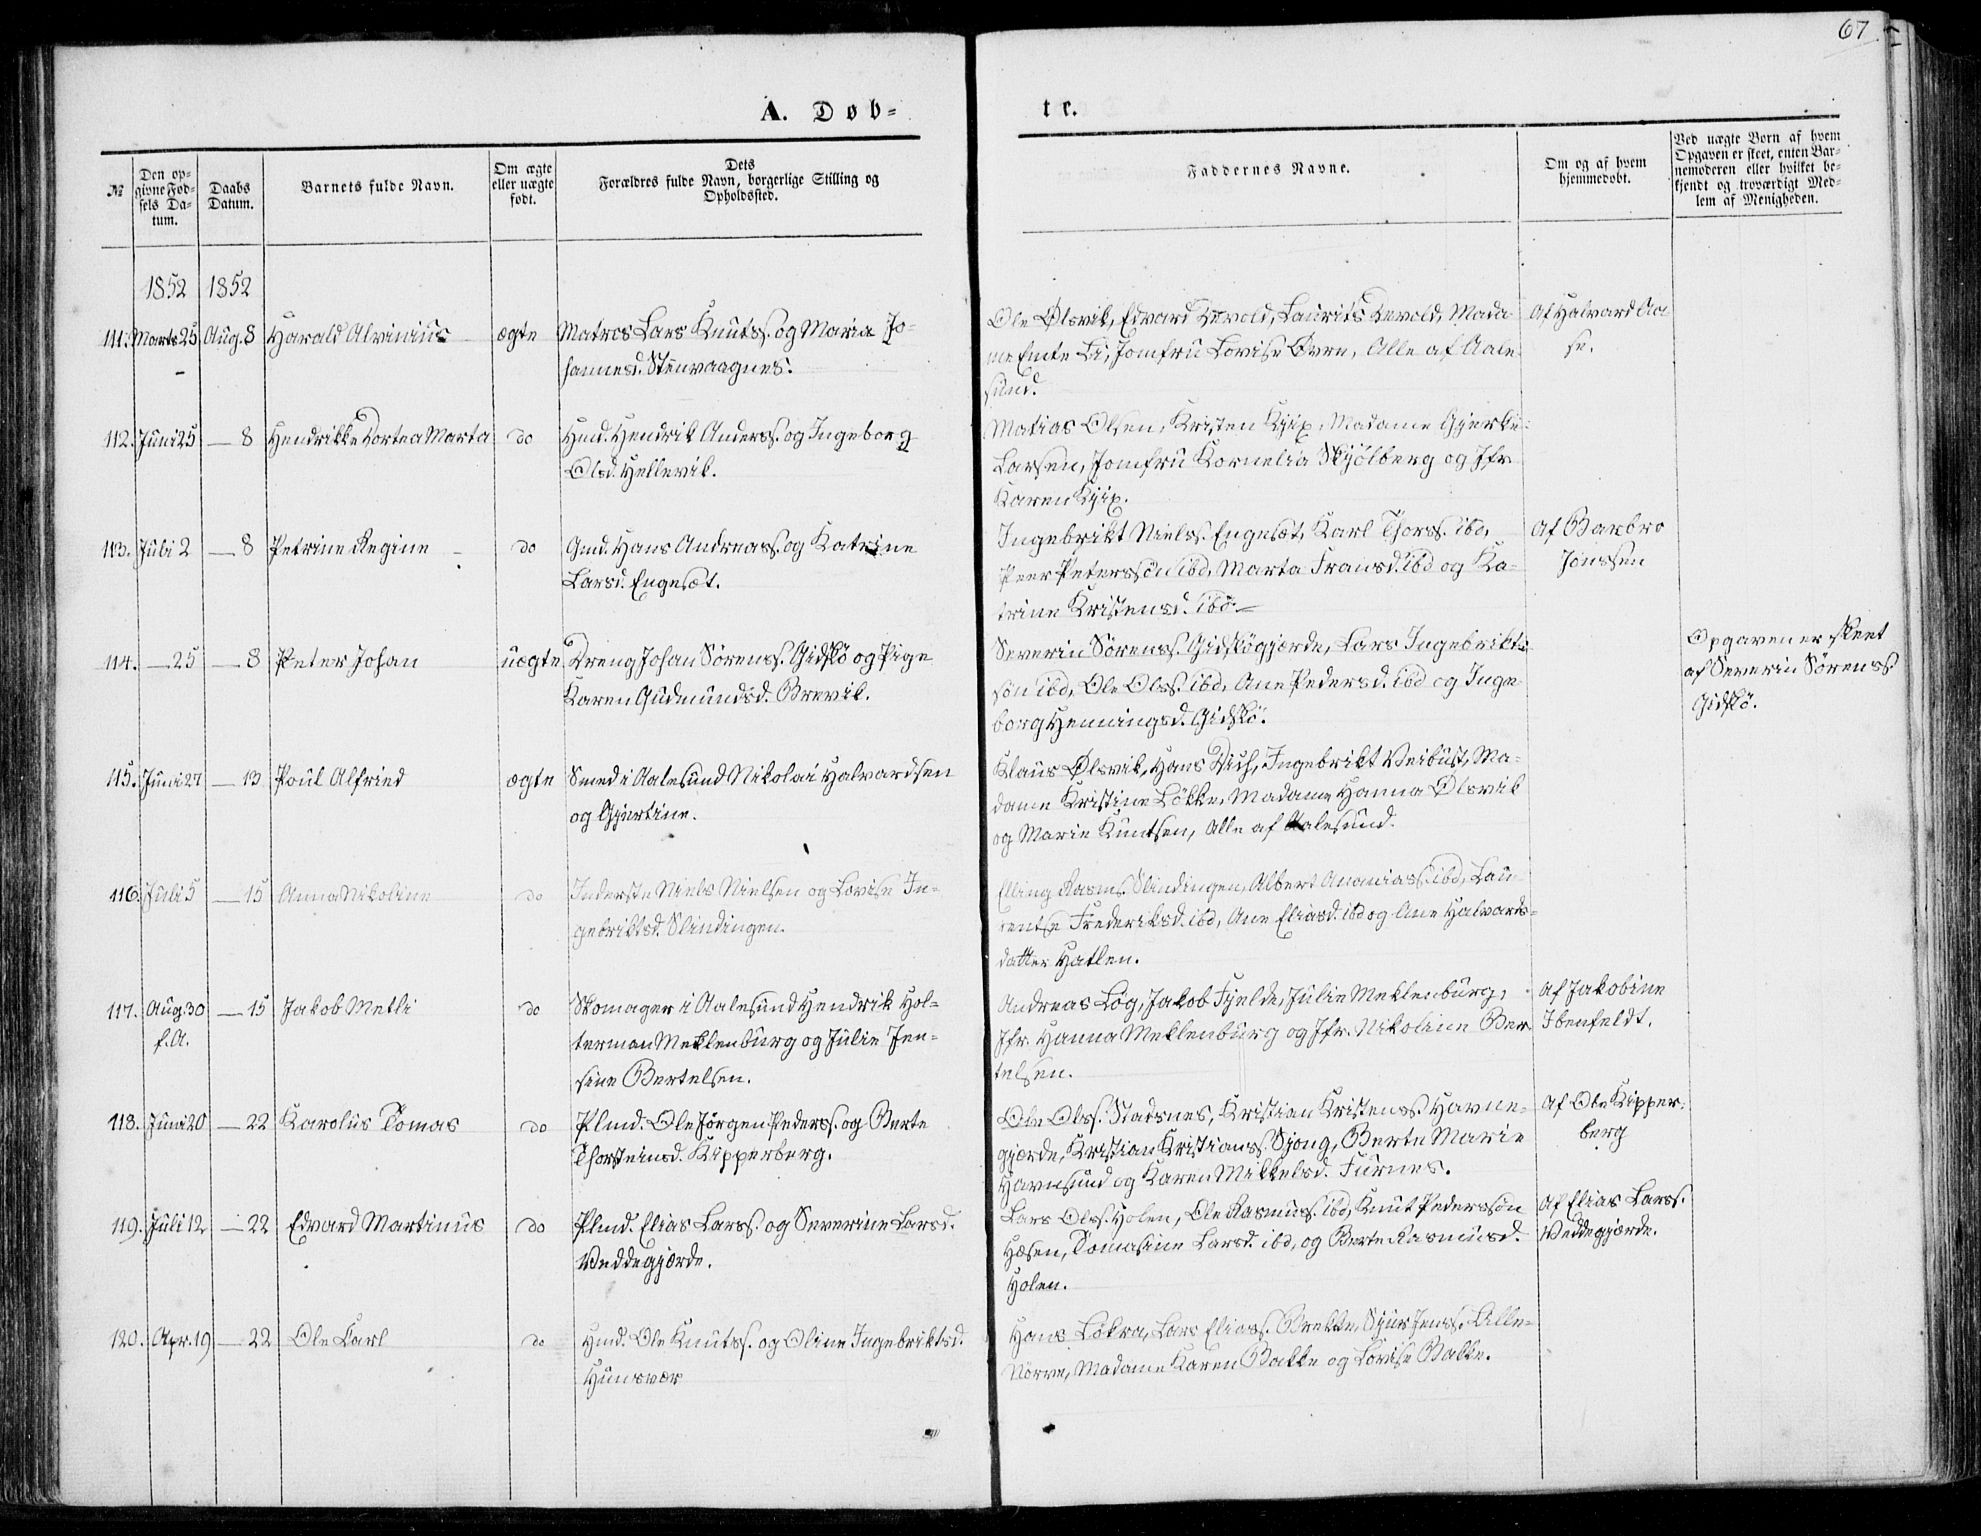 67
A. Døb-
te.
№
Den op-
givne Fød-
sels Da-
tum.
Daabs
Datum.
Barnets fulde Navn.
Om ægte
eller uægte
født.
Dets
Forældres fulde Navn, borgerlige Stilling og
Opholdssted.
Faddernes Navne.
Om og af hvem
hjemmedøbt.
Ved uægte Børn af hvem
Opgaven er skeet, enten Bar-
nemoderen eller hvilket be-
kjendt og troværdigt Med-
lem af Menigheden.
1852 1852
111. Marts 25 Aug. 8 Harald Alvinius ægte Matros Lars Knutss. og Maria Jo-
hannesd. Stenvaagnes.
Ole Ølsvik, Edvard Devold, Laurits Devold, Mada-
me Li, Jomfru Lovise Øvre, Alle af Aale-
sund.
Af Halvard Aa-
se.
112. Juni 25 — 8 Hendrikke Dortea Marta do Hmd. Hendrik Anderss. og Ingeborg
Olsd. Hellevik.
Matias Olsen, Kristen Kjix, Madame Gjerke-
Larsen, Jomfru Kornelia Skjølberg og Jfr.
Karen Kjix.
113. Juli 2 — 8 Petrine Regine do Gmd. Hans Andreass. og Katrine
Larsd. Engesæt.
Ingebrikt Nielss. Engesæt, Karl Thorss. ibd,
Peer Peterssøn ibd, Marta Fransd. ibd og Ka-
trine Kristensd. ibd. —
Af Barbro
Jonssen
114. — 25 — 8 Peter Johan uægte Dreng Johan Sørenss. Gidskø og Pige
Karen Gudmundsd. Brevik.
Severin Sørenss. Gidskøgjærde, Lars Ingebrikts-
søn ibd, Ole Olss. ibd, Ane Pedersd. ibd og Inge-
borg Henningsd. Gidskø.
Opgaven er skeet
af Severin Sørenss
Gidskø.
115. Juni 27 — 13 Poul Alfried ægte Smed i Aalesund Nikolai Halvardsen
og Gjertine.
Klaus Ølsvik, Hans Dich, Ingebrikt Veibust, Ma-
dame Kristine Løkke, Madame Hanna Ølsvik
og Marie Kuntsen, Alle af Aalesund.
116. Juli 5 — 15 Anna Nikoline do Inderste Niels Nielsen og Lovise In-
gebriktsd. Slindingen.
Elling Rasms. Slindingen, Albert Ananiass. ibd, Lau-
rentse Frederiksd. ibd, Ane Eliasd. ibd og Ane Halvards-
datter Hatlen.
117. Aug. 30 — 15 Jakob Metli do Skomager i Aalesund Hendrik Hol-
f. A.
terman Meklenburg og Julie Jen-
sine Bertelsen.
Andreas Løg, Jakob Fjelde, Julie Meklenburg,
Jfr. Hanna Meklenburg og Jfr. Nikoline Ber-
telsen.
Af Jakobine
Ibenfeldt.
118. Juni 20 — 22 Karolus Tomas do Plmd. Ole Jørgen Pederss. og Berte
Thorsteinsd. Kipperberg.
Ole Olss. Stadsnes, Kristian Kristenss. Havne-
gjærde, Kristian Kristianss. Sjong, Berte Marie
Havnsund og Karen Mikkelsd. Furnes.
Af Ole Kipper-
berg
119. Juli 12 — 22 Edvard Martinus do Plmd. Elias Larss. og Severine Larsd.
Veddegjærde.
Lars Olss. Holen, Ole Rasmuss. ibd, Knut Pederssøn
Hæsen, Tomasine Larsd. ibd, og Berte Rasmusd.
Holen.
Af Elias Larss.
Veddegjærde.
120. Apr. 19 — 22 Ole Carl do Hmd. Ole Knutss. og Oline Ingebriktsd.
Hunsvær
Hans Løkra, Lars Eliass. Brekke, Sjur Jenss. Lille-
Nørve, Madame Karen Bakke og Lovise Bakke.